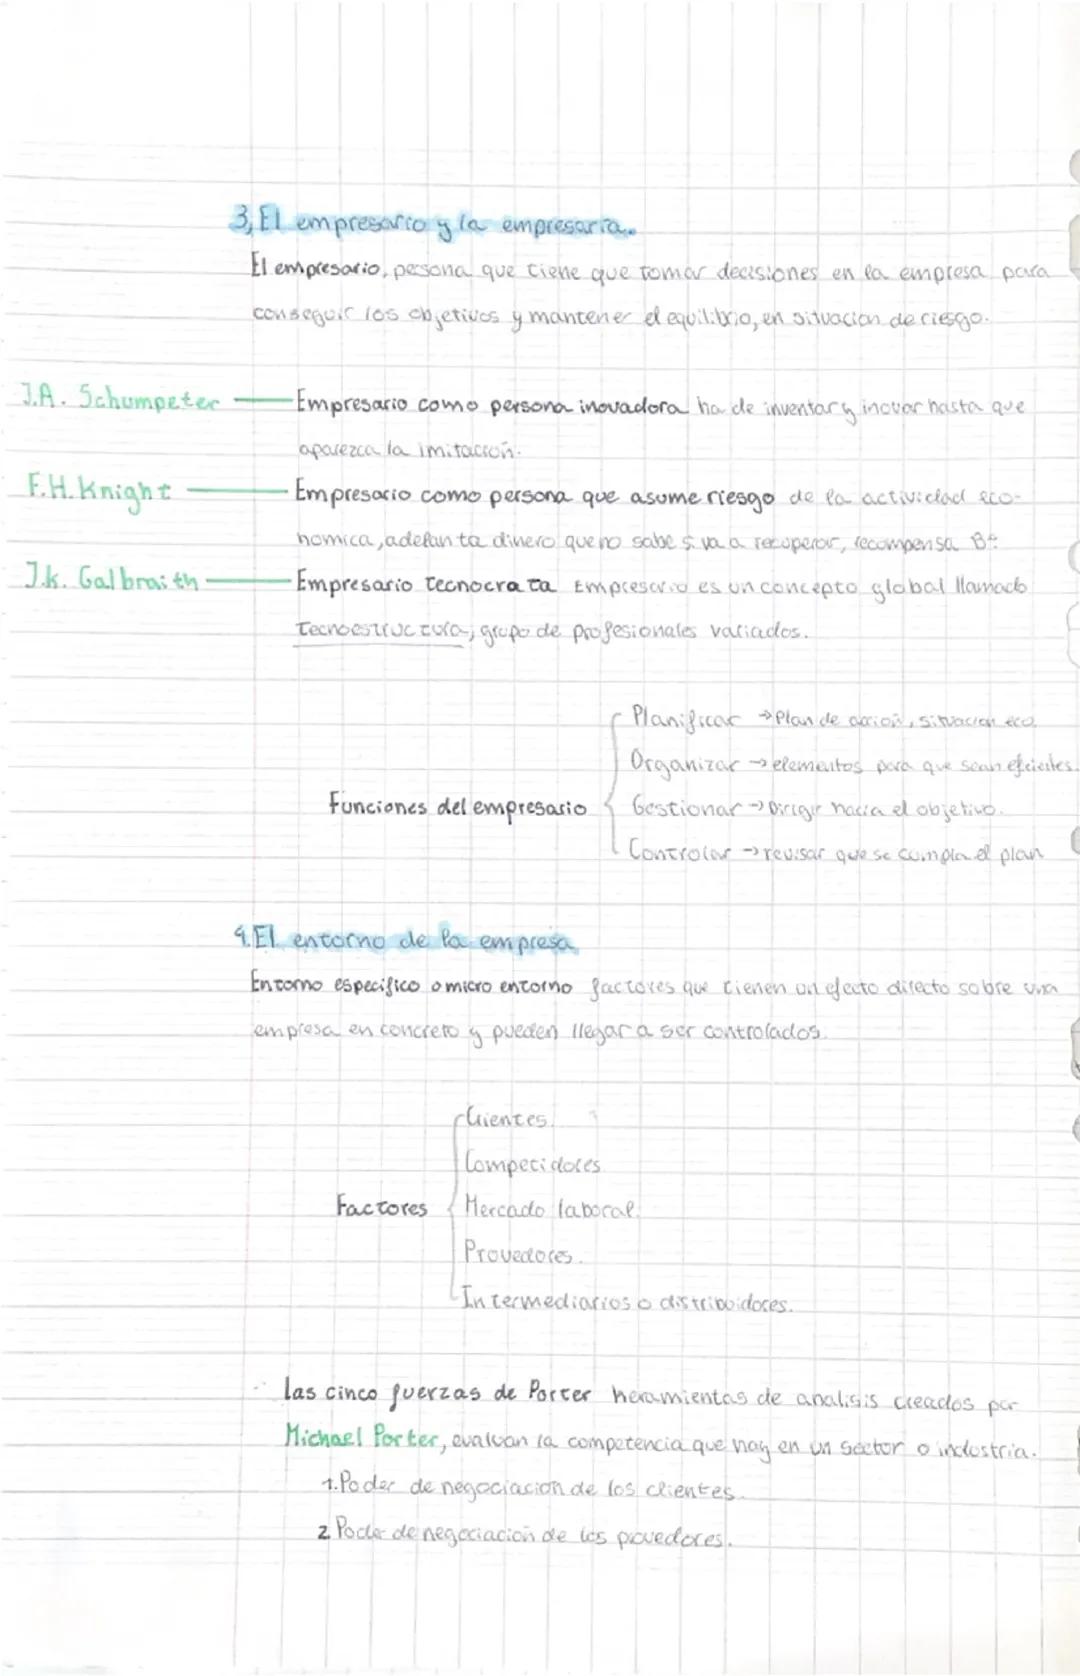 3, El empresario y la empresaria.
El empresario, persona que tiene que tomar decisiones en la empresa para
conseguir los objetivos y mantener el equilibrio, en situacion de riesgo.
J.A. Schumpeter — Empresario como persona inovadora ha de inventar y inovar hasta que
aparezca la imitación.
F.H. Knight — Empresario como persona que asume riesgo de la actividad eco-
nomica, adelanta dinero que no sabe si va a recuperar, recompensa Bº.
J.k. Galbraith — Empresario tecnocrata Empresario es un concepto global llamado
tecnoestructura, grupo de profesionales variados.
Planificar → Plan de acción, situacion eco.
Organizar → elementos para que sean eficientes.
Funciones del empresario
Gestionar → Dirigir hacia el objetivo.
Controlar → revisar que se cumpla el plan
4. El entorno de la empresa
Entorno especifico o micro entorno factores que tienen un efecto directo sobre una
empresa en concreto y pueden llegar a ser controlados.
Clientes.
Competidores
Factores
Mercado laboral.
Provedores.
Intermediarios o distribuidores.
las cinco fuerzas de Porter heramientas de analisis creados por
Michael Porter, evaluan la competencia que hay en un sector o industria.
1. Poder de negociacion de los clientes.
2. Poder de negociación de los provedores.